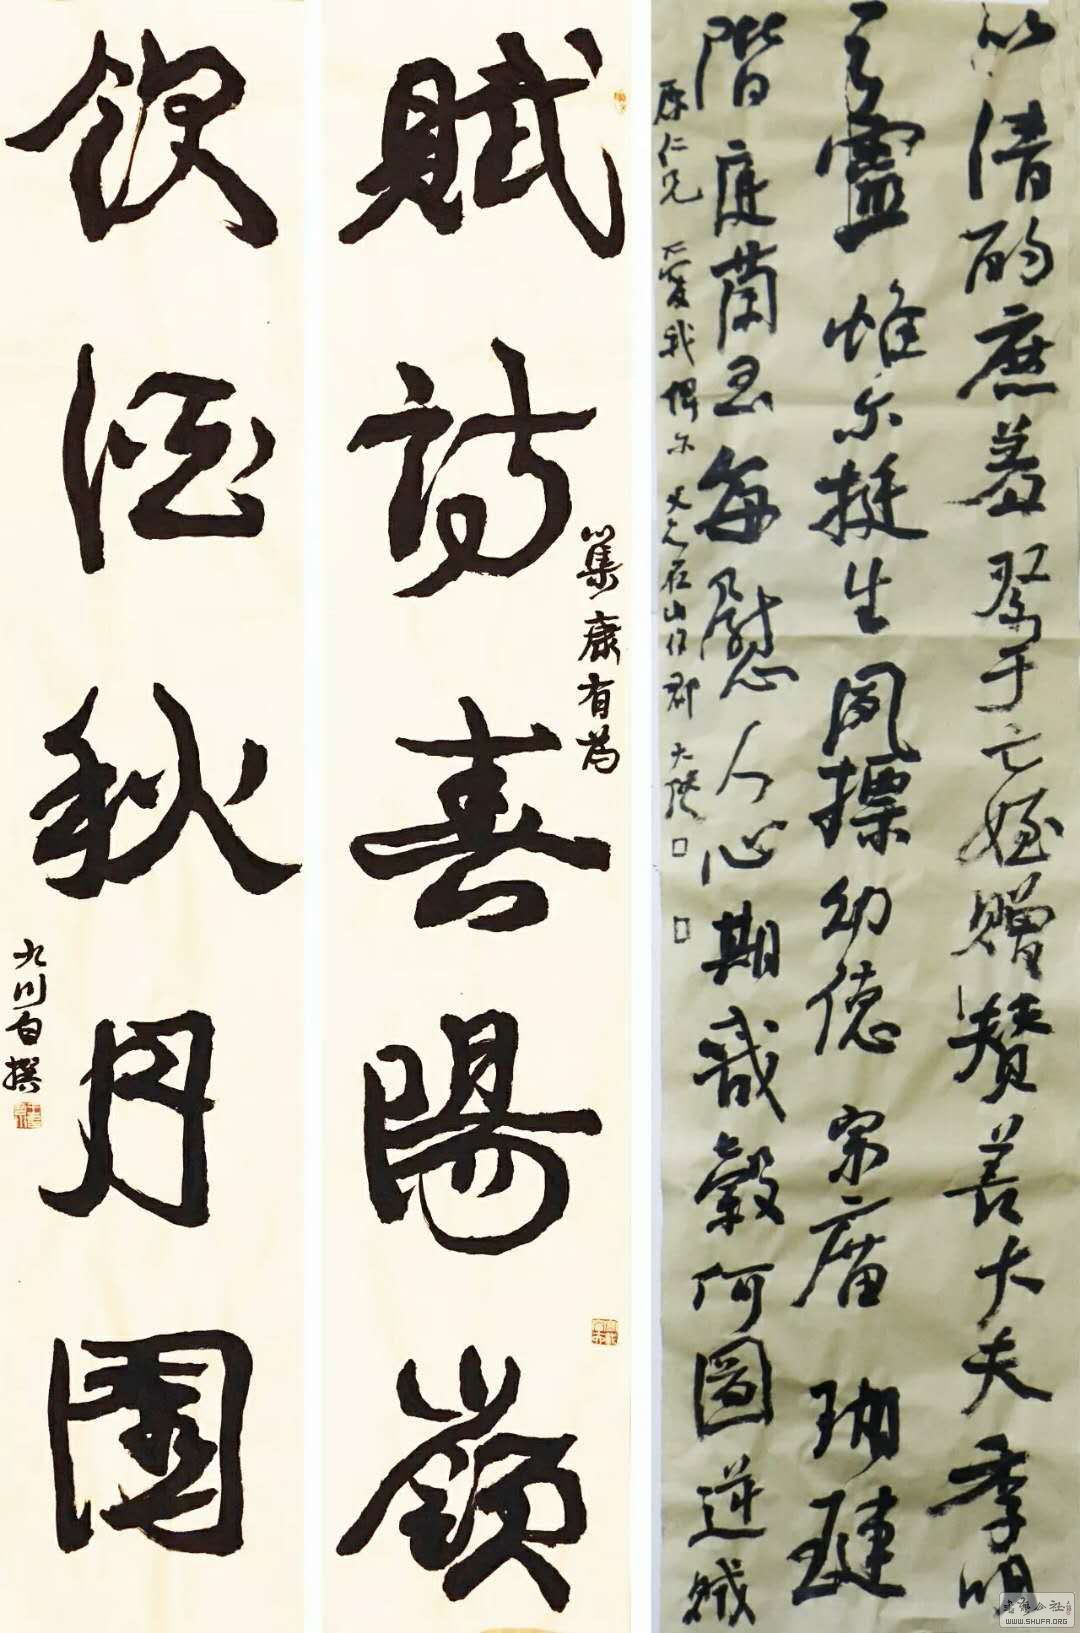 以清酌庶羞祭于亡姪贈贊善大夫季明
之靈惟尔挺生夙標幼德宗廟瑚璉
階庭蘭玉每慰人心期戩穀何圖逆賊
仁兄 愛我
賦詩春陽嶺
集康有為
飲酒秋月園
九川自撰
书法公社
WWW.SHUFA.ORG